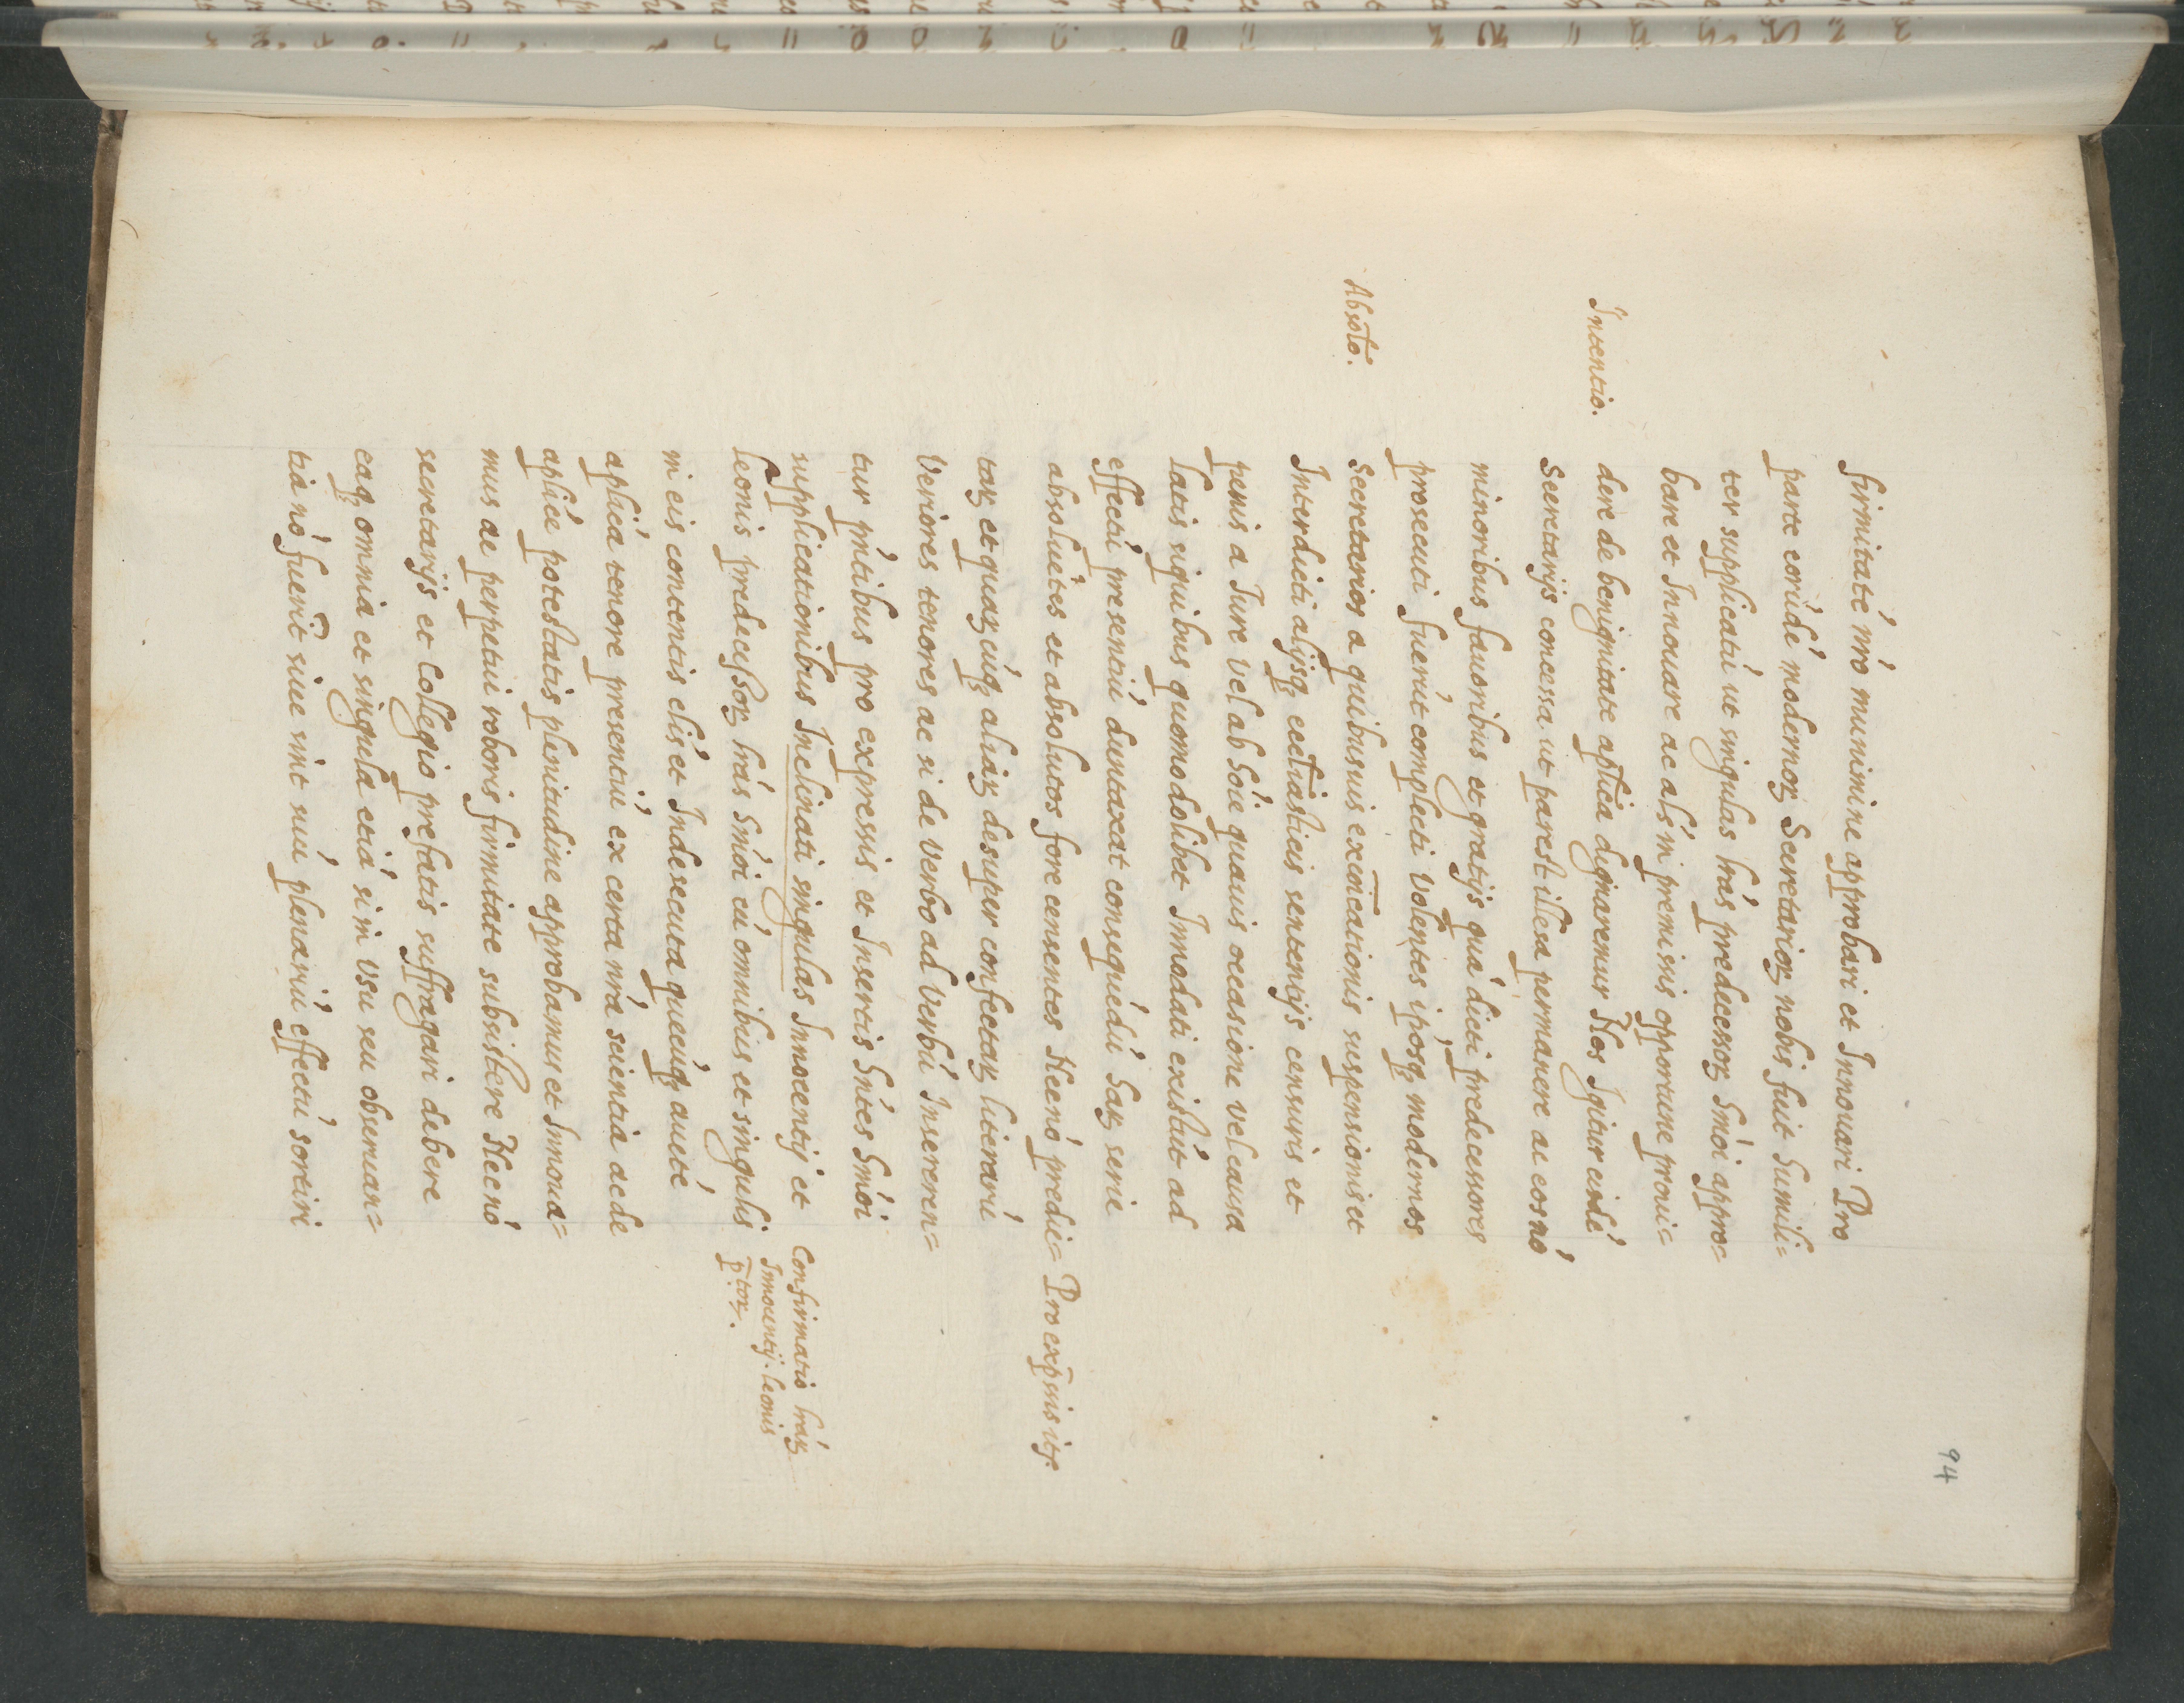 94
firmitate͂ nr͂o munimine approbari et Innouari Pro
parte eorúdé modernoꝝ Secretarioꝝ nobis fuit humili=
ter supplicatú ut singulas lr͂as predecessoꝝ hmo͂i appro=
bare et Innouare ac als͂ in premissis opportune proui=
Intentio.
dere de benignitate aplica͂ dignaremur Nos Igitur eisdé
Secretarijs concessa ut par est illesa permanere ac eos nó
minoribus fauoribus et gratijs quá dicti predecessores
prosecuti fuerút complecti volentes iposq; modernos
Absol͂o.
Secretarios a quibusuis exco͂icationis suspensionis et
Interdicti alijsq; eccl͂iasticis sententijs censuris et
penis a Iure vel ab ho͂ie quauis occasione vel causa
latis siquibus quomodolibet Innodati existút ad
effectú presentiú duntaxat consequédú haꝝ serie
absoluétes et absolutos fore censentes Necnó predi=
Pro exp͂ssis itꝭ.
taꝝ et quaꝝcúq; aliaꝝ desuper confectaꝝ literarú
Veriores tenores ac si de verbo ad verbú Insereren=
tur pńtibus pro expressis et Insertis hńtes hmo͂i
supplicationibus Inclinati singulas Innocentij et
Confirmatio lr͂aꝝ
Innocentij. leonis
p͂toꝝ.
leonis predecessoꝝ lr͂as hmo͂i cú omnibus et singulis
in eis contentis clis͂ et Inde secuta quecúq; aucté
aplica͂ tenore presentiú ex certa nr͂a scientia ac de
aplice͂ potestatis plenitudine approbamus et Innoua=
mus ac perpetui roboris firmitate subsistere Necnó
secretarijs et Collegio prefatis suffragari debere
eaq; omnia et singula etiá si in vsu seu obseruan=
tia nó fuerit͂ siue sint suú plenariú effectú sortiri